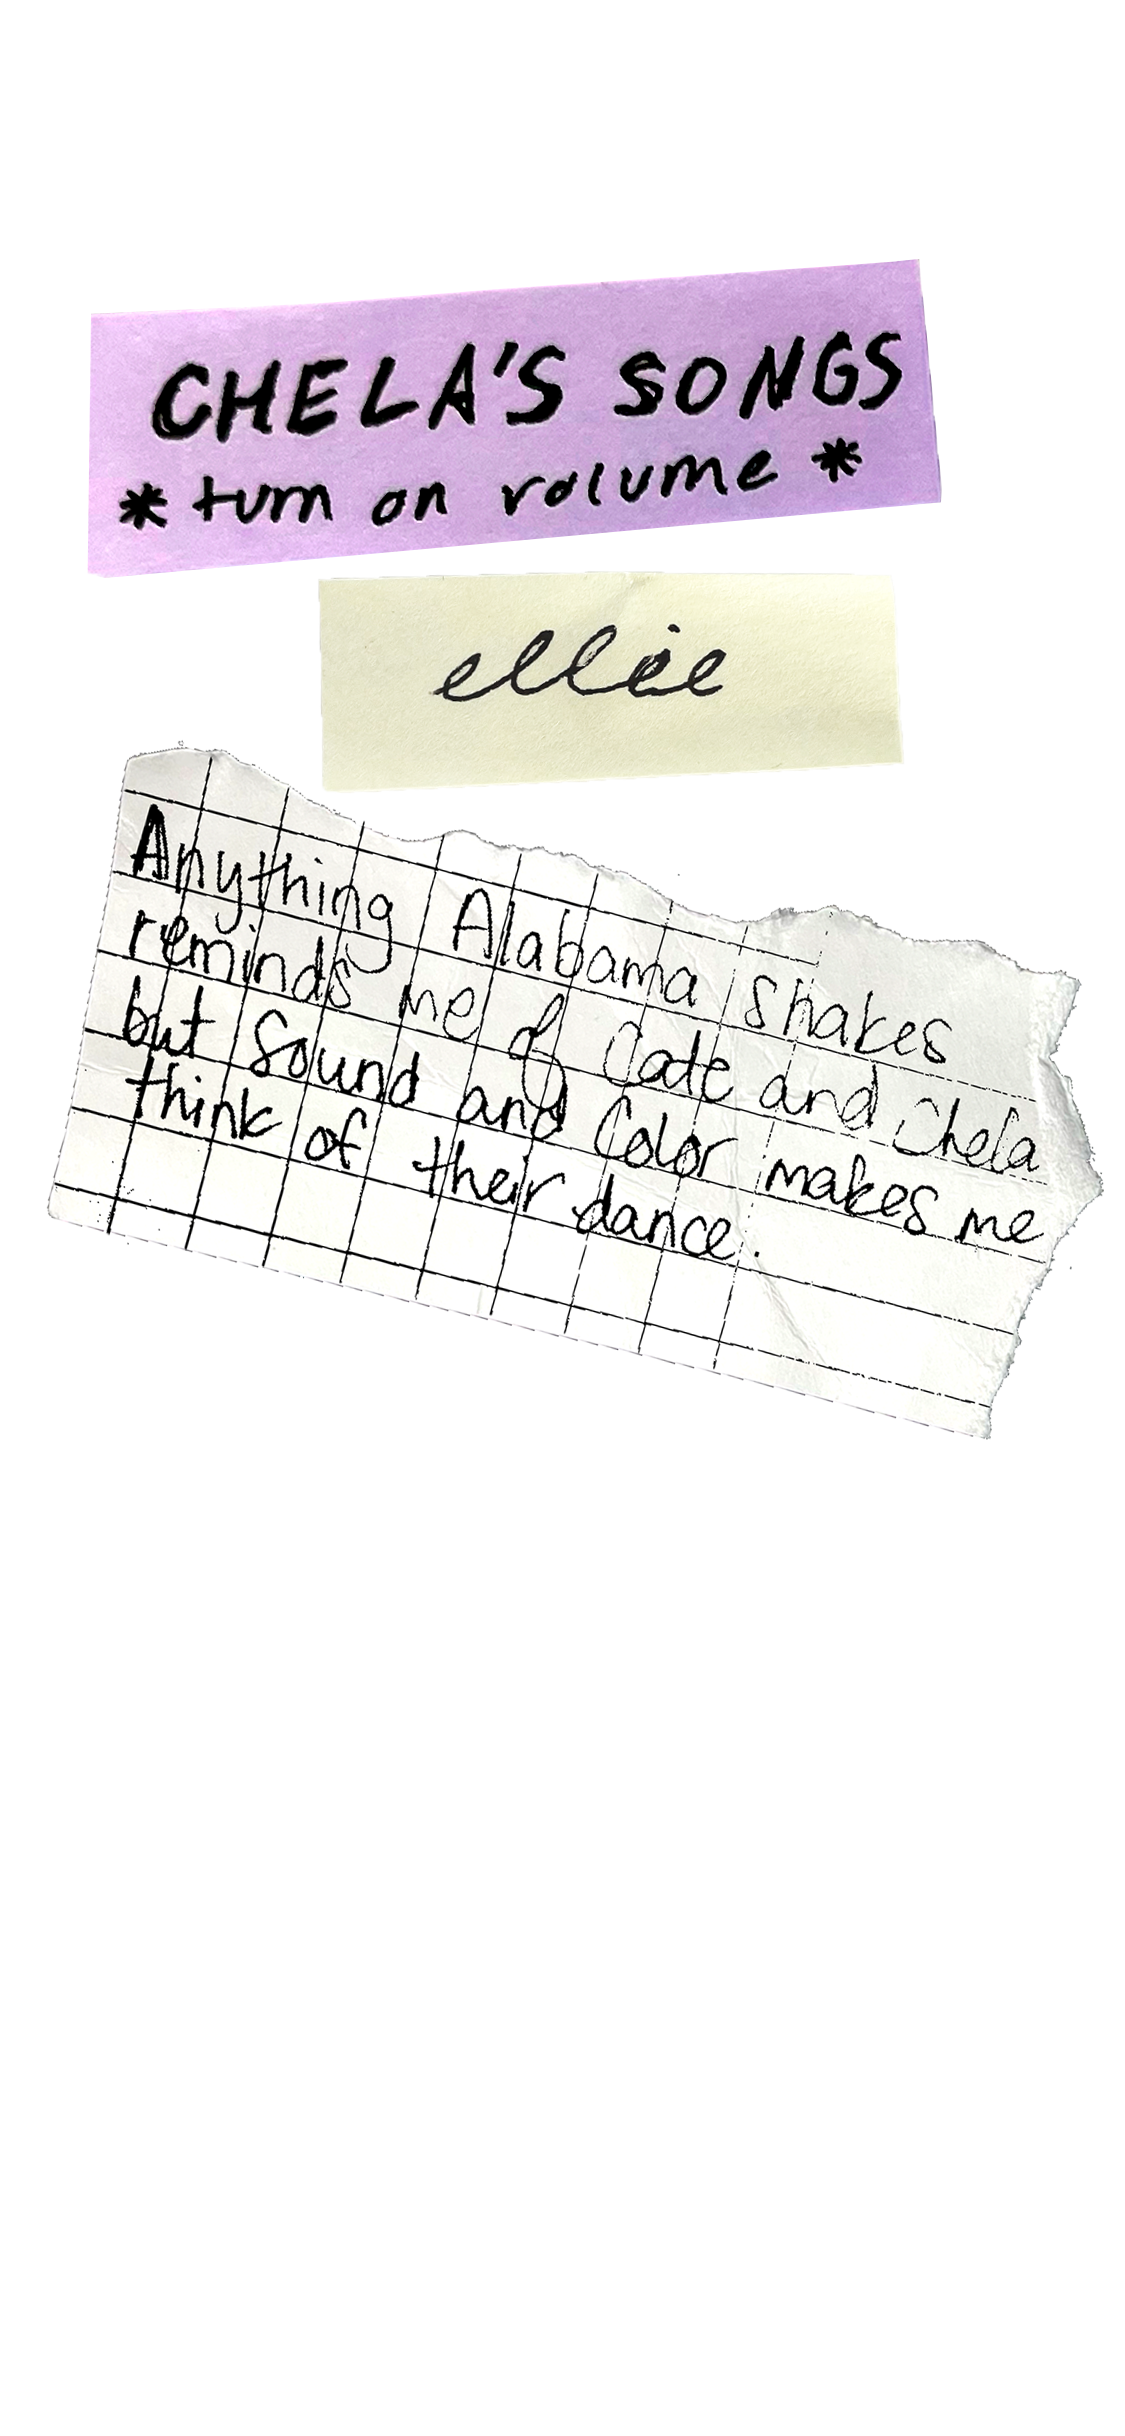 CHELA'S SONGS
* turn on volume *
ellie
Anything Alabama Shakes
reminds me of Cate and Chela
but Sound and Color makes me
think of their dance.